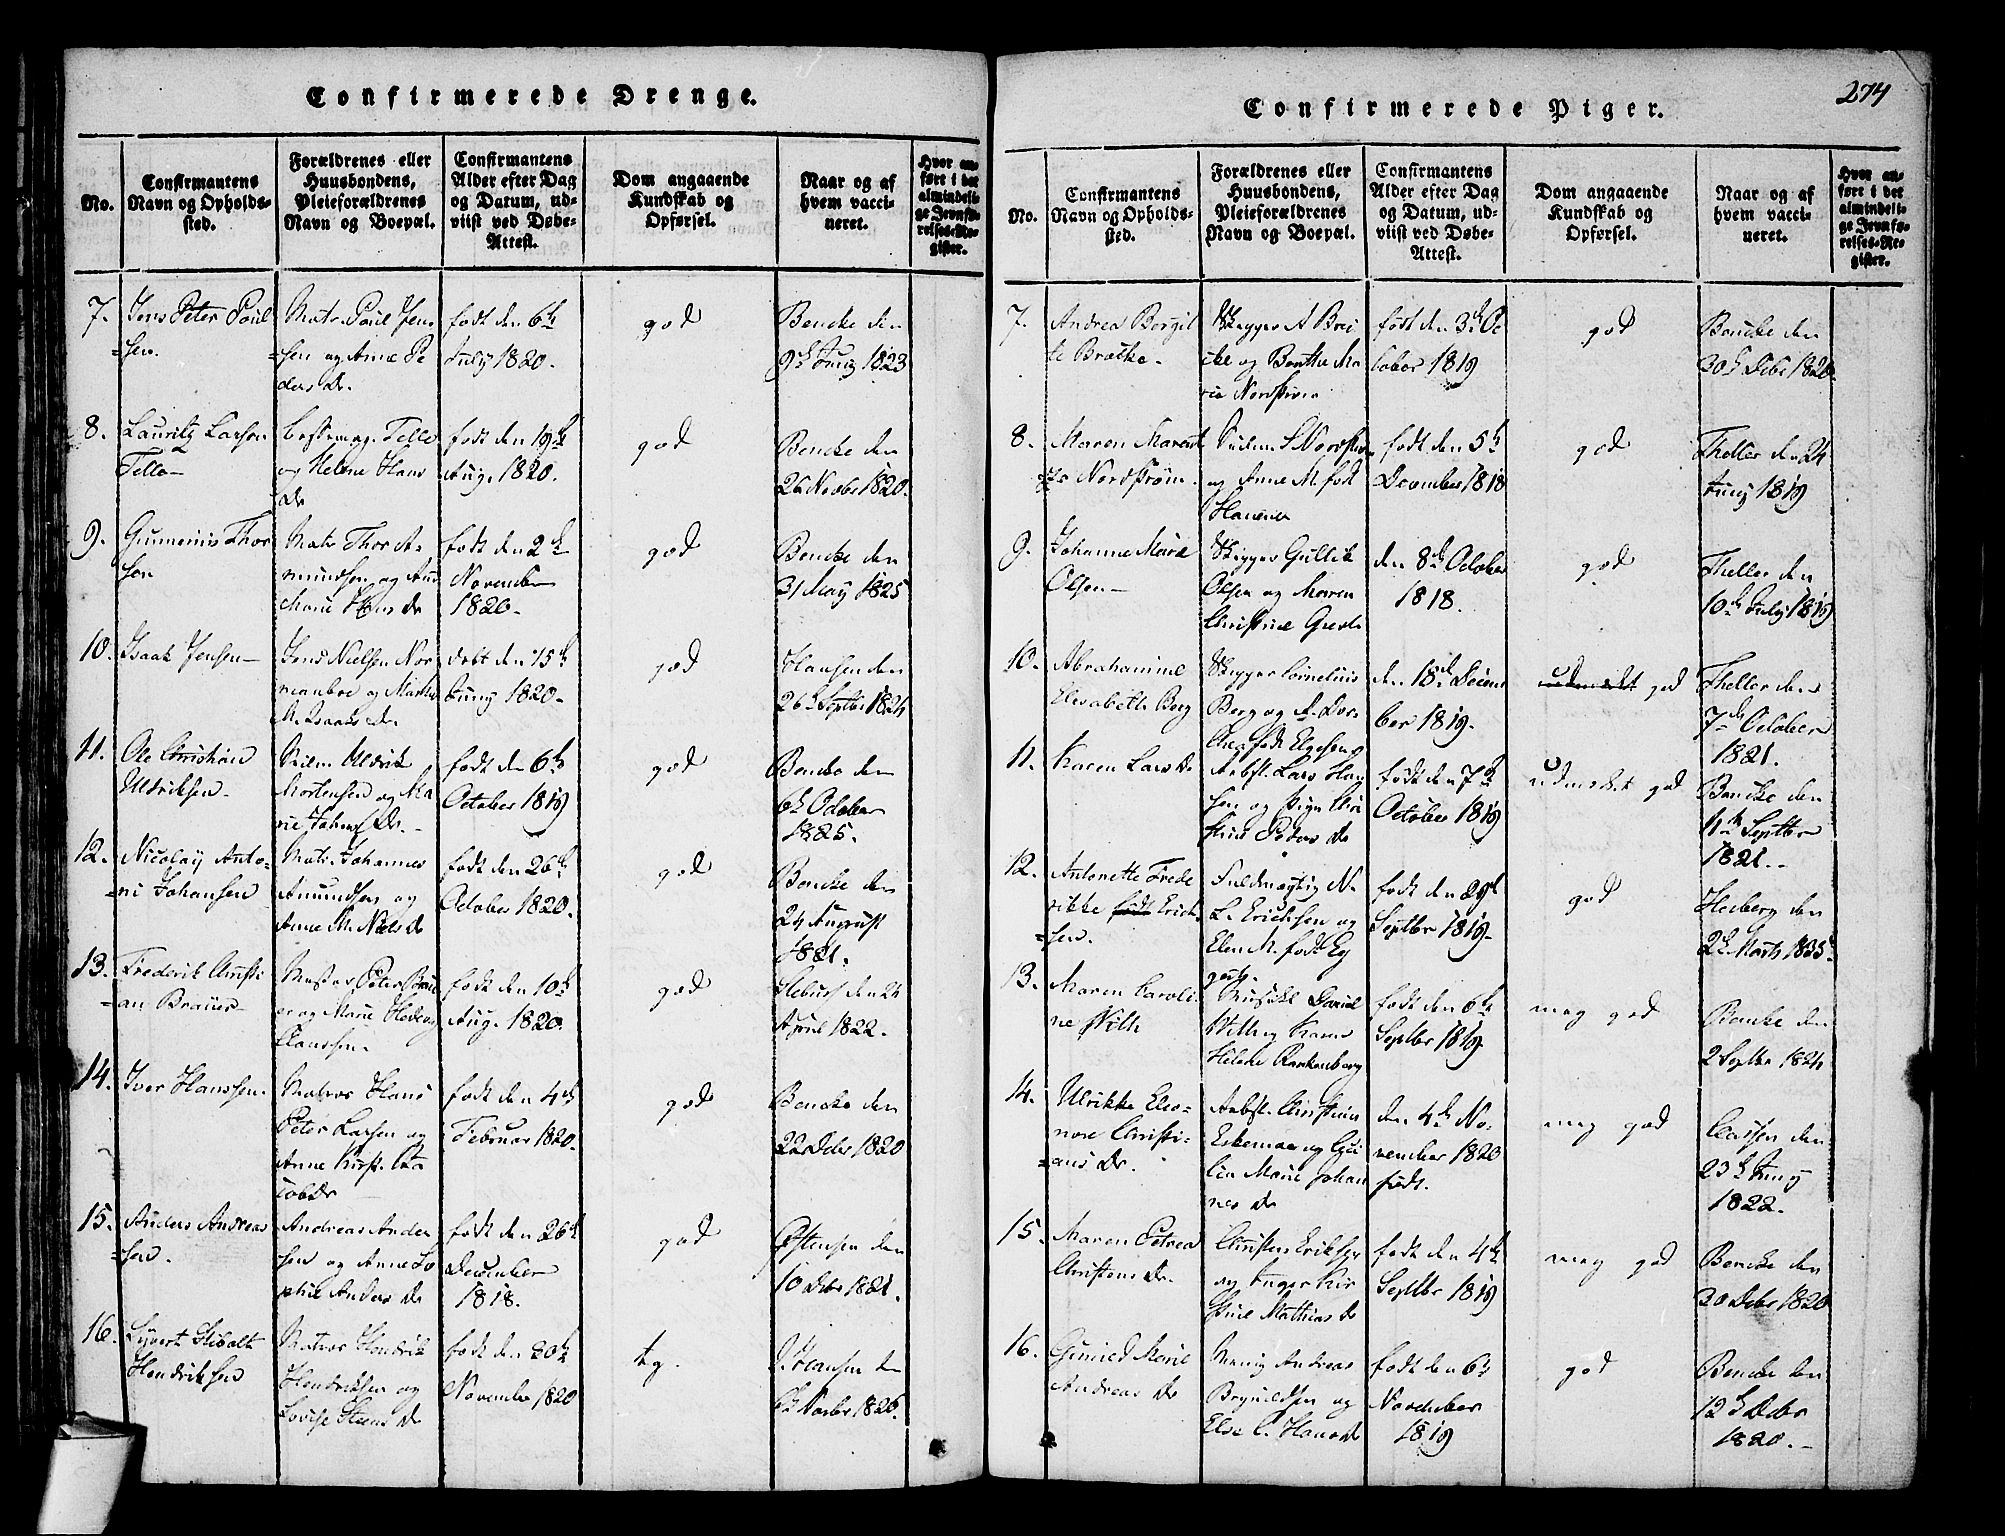 Confirmerede Drenge.
No.
Confirmantens
Navn og Opholds-
sted.
Forældrenes eller
Huusbondens,
Pleieforældrenes
Navn og Boepæl.
Confirmantens
Alder efter Dag
og Datum, ud-
viist ved Døbe-
Attest.
Dom angaaende
Kundskab og
Opførsel.
Naar og af
hvem vacci-
neret.
Hvor an-
ført i det
almindeli-
ge Jevnfø-
relses-Re-
gister.
7.
Jens Peter Poul
sen.
Matr. Poul Jen
sen og Anne Pe
ders Dr.
født den 6te
July 1820.
god
Bencke den
9de Juny 1823
8.
Lauritz Larsen
Telle
og Helene Hans
Dr
født den 19de
Aug. 1820.
god
Bencke den
26 Novbr 1820.
9.
Thor
sen
Matr Thor A-
mundsen og Ane
Marie Hans Dr
født den 2de
November
1820.
god
Bencke den
31 May 1825
10.
Isaak Jensen
Jens Nielsen Nor
manboe og Marthe
M. Isaacs Dr
døbt den 15de
Juny 1820.
god
Hansen den
26de Septbr 1824
11.
Ole Christian
Uldriksen
Uldrik
Mortensen og Ma
rie Johns Dr.
født den 6te
October 1819
god
Bencke den
6te October
1825.
12.
Nicolay Anto-
ni Johansen
Matr. Johannes
Amundsen og
Anne M. Niels Dr
født den 26de
October 1820.
god
Bencke den
24 August
1821.
13.
Frederik Christi
an Brauer
Peter Brau
er og Marie
Claussen.
født den 10de
Aug. 1820.
god
den 24
April 1822.
14.
Iver Hanssen.
Matros Hans
Peter Larsen og
Anne Kirst. Ja
cobs Dr
født den 4de
Februar 1820.
god
Bencke den
22 Debr 1820
15.
Anders Andreas
sen.
Andreas Ander
sen og Anne So
phie Anders Dr
født den 26de
December
1818.
god
Østensen den
10 Debr 1821.
16.
Syvert Sibolt
Hendriksen
Matros Hendrik
Hendriksen og
Lovise Steens Dr
født den 20de
November 1820
tg.
Hansen den
Novbr 1826.
274
Confirmerede Piger.
No.
Confirmantens
Navn og Opholds-
sted.
Forældrenes eller
Huusbondens,
Pleieforældrenes
Navn og Boepæl.
Confirmantens
Alder efter Dag
og Datum, ud-
viist ved Døbe-
Attest.
Dom angaaende
Kundskab og
Opførsel.
Naar og af
hvem vacci-
neret.
Hvor an-
ført i det
almindeli-
ge Jevnfø-
relses-Re-
gister.
7.
Andrea Bergit
te Bræcke.
Skipper A Bræ
cke og Benthe Ma
ria Nordstrøm
født den 3de Oc
tober 1819
god
Bencke den
30te Debr 1820
8.
Maren
Nordstrøm.
S Nordstrøm
og Anne M. født
født den 5te
December 1818
god
Theller den 24
Juny 1819
9.
Johanne Marie
Olsen
Skipper Gullik
Olsen og Maren
Christine
den 8de October
1818.
god
Theller den
10de July 1819
10.
Abrahamine
Elisabeth Berg
Skipper Cornelius
Berg og A. Dor-
thea født
den 18de Decem
ber 1819.
udmærket god
Theller den
7de October
1821.
11.
Karen Lars Dr
Arbst. Lars Han
sen og Chri
stine Peders Dr
født den 7de
October 1819
udmærket god
Bencke den
11te Septbr
1821.
12.
Antonette Frede
rikke født Erich
sen.
Fuldmægtig N.
L. Erichsen og
Elen M. født Ey
gest.
født den 29de
Septbr 1819.
god
Heiberg den
2de Marts 1835
13.
Maren Caroli
ne With
Daniel
With og Karen
Helene Rankenberg
født den 6te
Septbr 1819
meg god
Bencke den
2 Septbr 1824
14.
Ulrikke Eleo-
nore Christi-
ans Dr.
Arbst. Christian
og
lia Marie Johan
nes Dr
den 4de No-
vember 1820
født.
meg god
Claussen den
23de Juny
1822.
15.
Maren Petrea
Christens Dr.
Christen Eriksen
og Inger Kir
stine Mathias Dr
født den 4de
Septbr 1819
meg god
Bencke den
30 Debr 1820
16.
Gunild Marie
Andreas Dr
Andreas
Brynildsen og
Else C. Hans Dr
født den 6te
November
1819
god
Bencke den
12te Debr
1820.